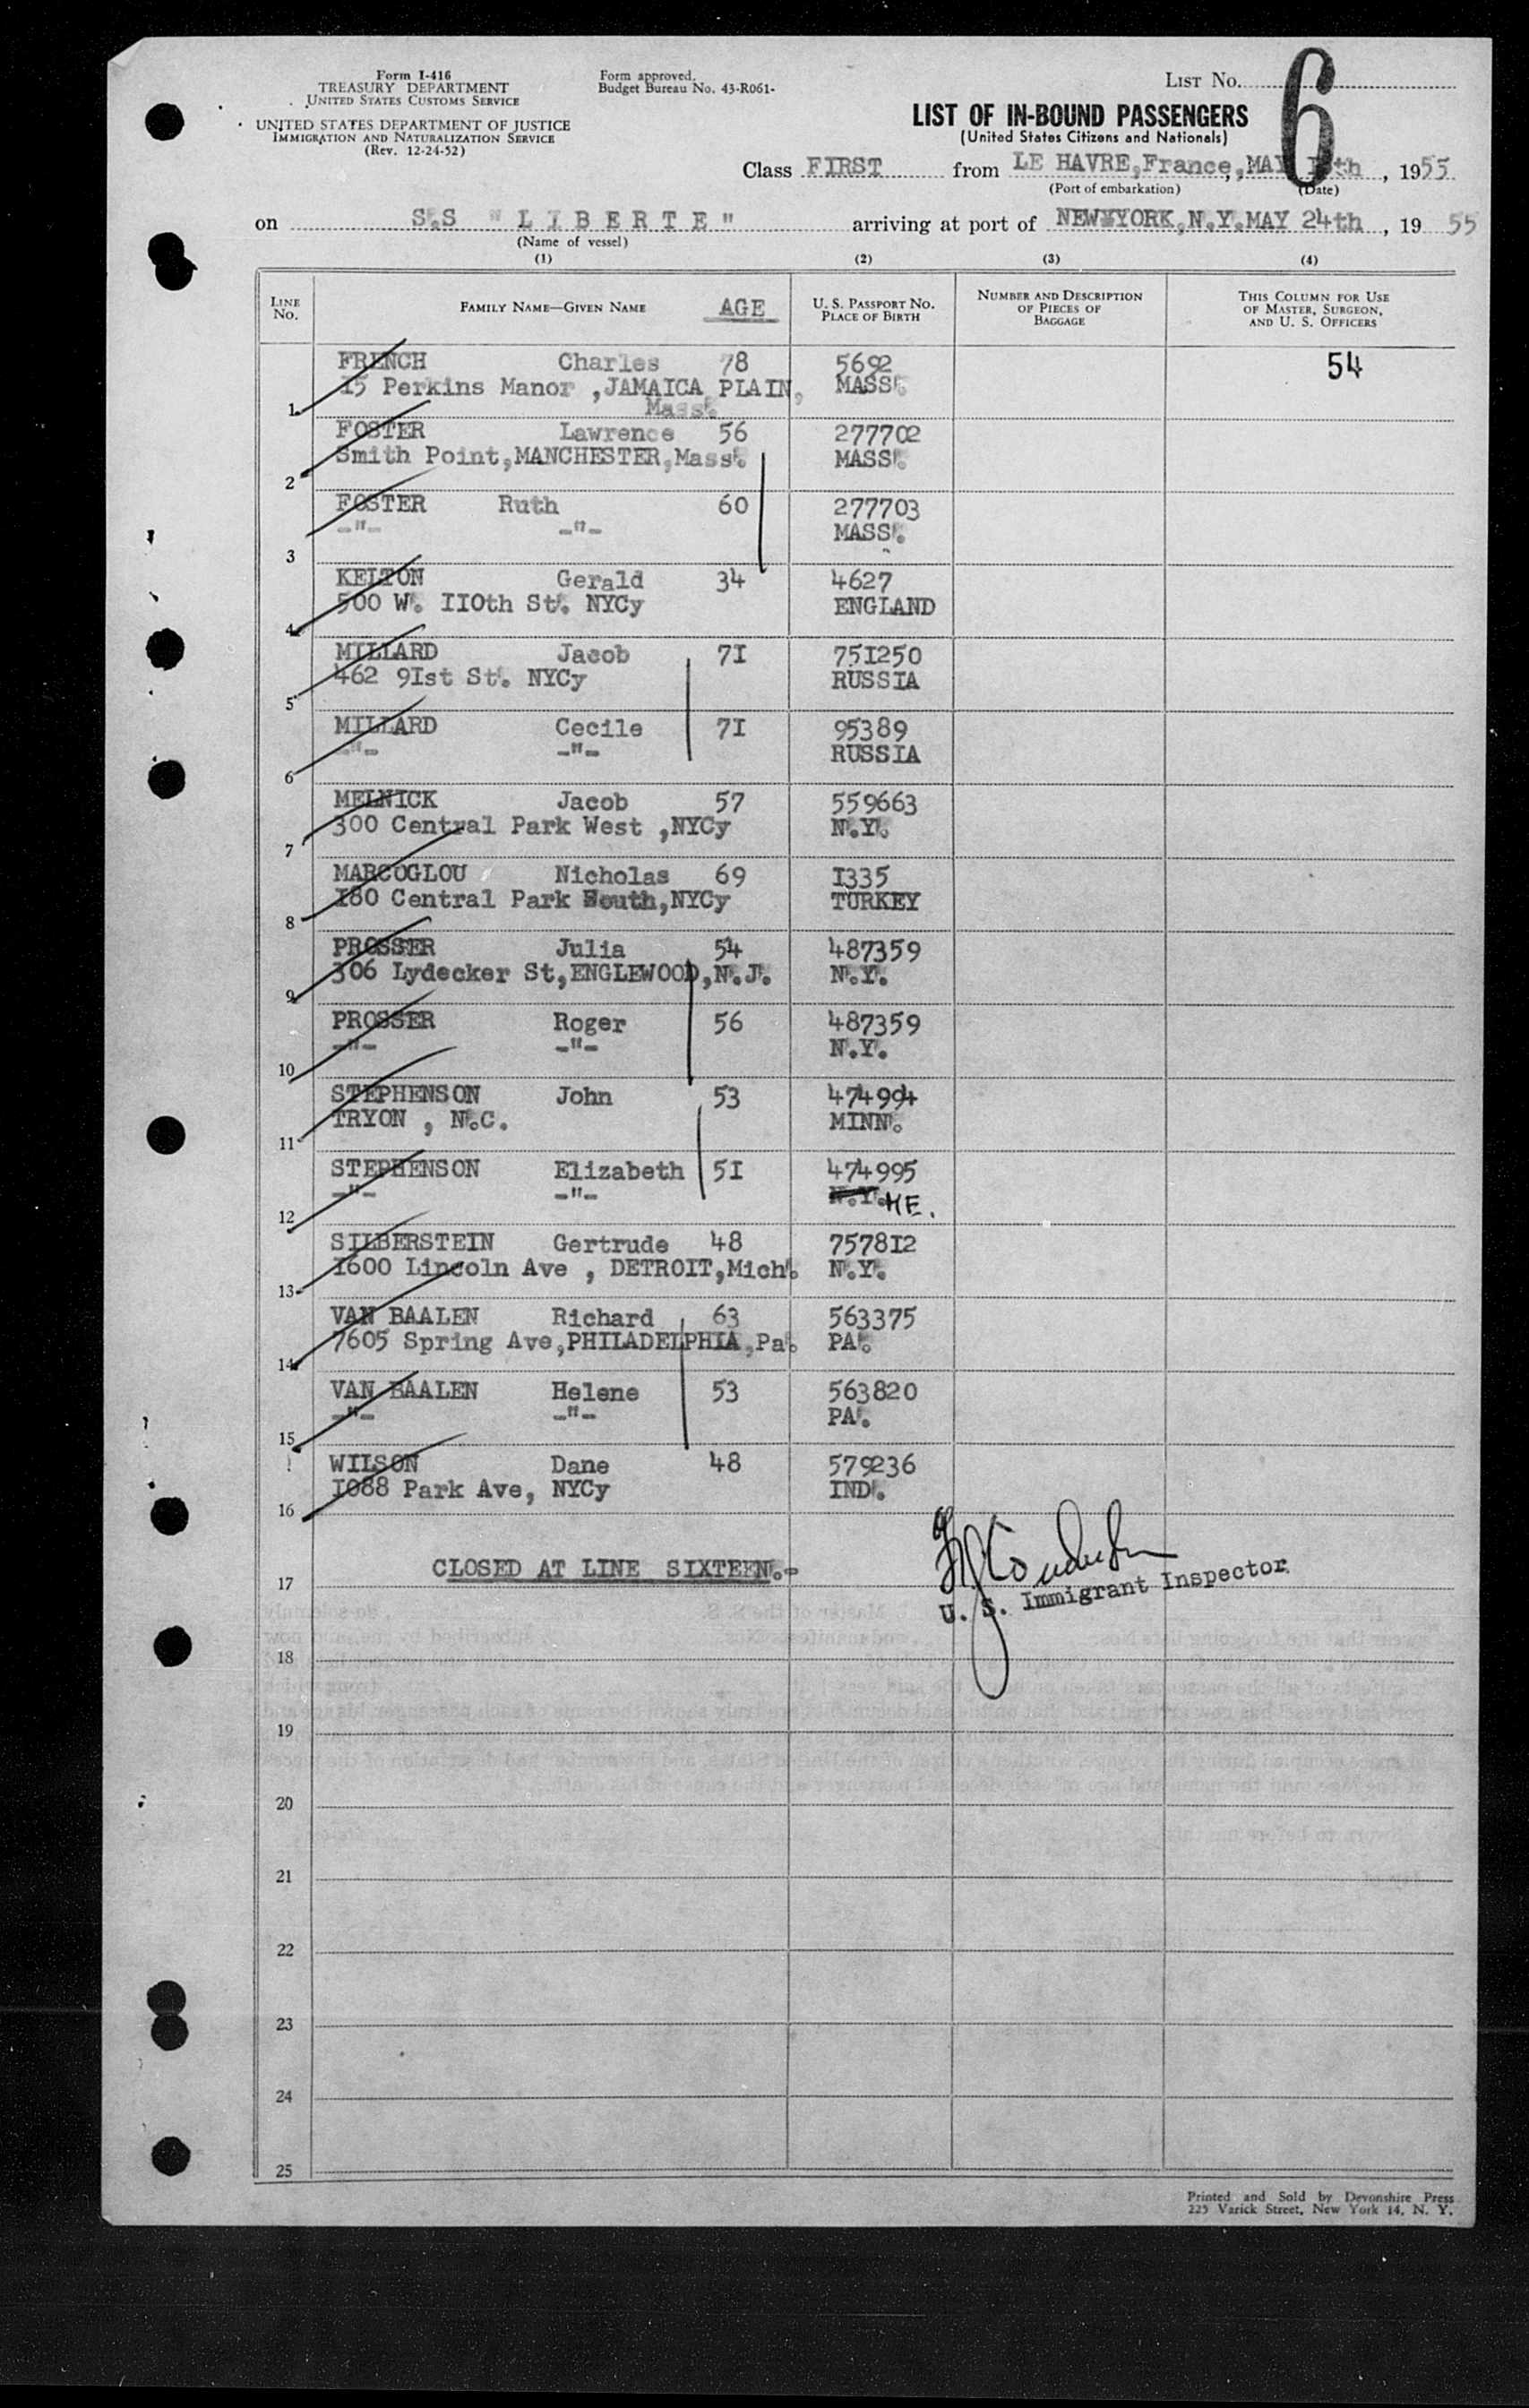 Form I-416
TREASURY DEPARTMENT
UNITED STATES CUSTOMS SERVICE
UNITED STATES DEPARTMENT OF JUSTICE
IMMIGRATION AND NATURALIZATION SERVICE
(Rev. 12-24-52)
Form approved.
Budget Bureau No. 43-R061-
LIST No. 6
LIST OF IN-BOUND PASSENGERS
(United States Citizens and Nationals)
Class FIRST from LE HAVRE,France,MAY th, 1955
(Port of embarkation) (Date)
on S.S "LIBERTE" arriving at port of NEWYORK,N.Y.MAY 24th, 19 55
(Name of vessel)
(1) (2) (3) (4)
LINE No. FAMILY NAME—GIVEN NAME AGE U. S. PASSPORT NO. PLACE OF BIRTH NUMBER AND DESCRIPTION OF PIECES OF BAGGAGE THIS COLUMN FOR USE OF MASTER, SURGEON, AND U. S. OFFICERS
FRENCH Charles 78 5692 54
15 Perkins Manor ,JAMAICA PLAIN, MASS.
1 Mass.
FOSTER Lawrence 56 277702
Smith Point,MANCHESTER,Mass. MASS.
2
FOSTER Ruth 60 277703
-"- -"- MASS.
3
KELTON Gerald 34 4627
500 W. II0th St. NYCy ENGLAND
4
MILLARD Jacob 7I 75I250
462 9Ist St. NYCy RUSSIA
5
MILLARD Cecile 7I 95389
-"- -"- RUSSIA
6
MELNICK Jacob 57 559663
300 Central Park West ,NYCy N.Y.
7
MARCOGLOU Nicholas 69 I335
I80 Central Park South,NYCy TURKEY
8
PROSSER Julia 54 487359
306 Lydecker St,ENGLEWOOD,N.J. N.Y.
9
PROSSER Roger 56 487359
-"- -"- N.Y.
10
STEPHENSON John 53 474994
TRYON , N.C. MINN.
11
STEPHENSON Elizabeth 5I 474995
-"- -"- N.Y. ME.
12
SILBERSTEIN Gertrude 48 7578I2
I600 Lincoln Ave , DETROIT,Mich. N.Y.
13
VAN BAALEN Richard 63 563375
7605 Spring Ave,PHILADELPHIA,Pa. PA.
14
VAN BAALEN Helene 53 563820
-"- -"- PA.
15
WILSON Dane 48 579236
I088 Park Ave, NYCy IND.
16
CLOSED AT LINE SIXTEEN.-
17
U. S. Immigrant Inspector
18
19
20
21
22
23
24
25
Printed and Sold by Devonshire Press
225 Varick Street, New York 14, N. Y.